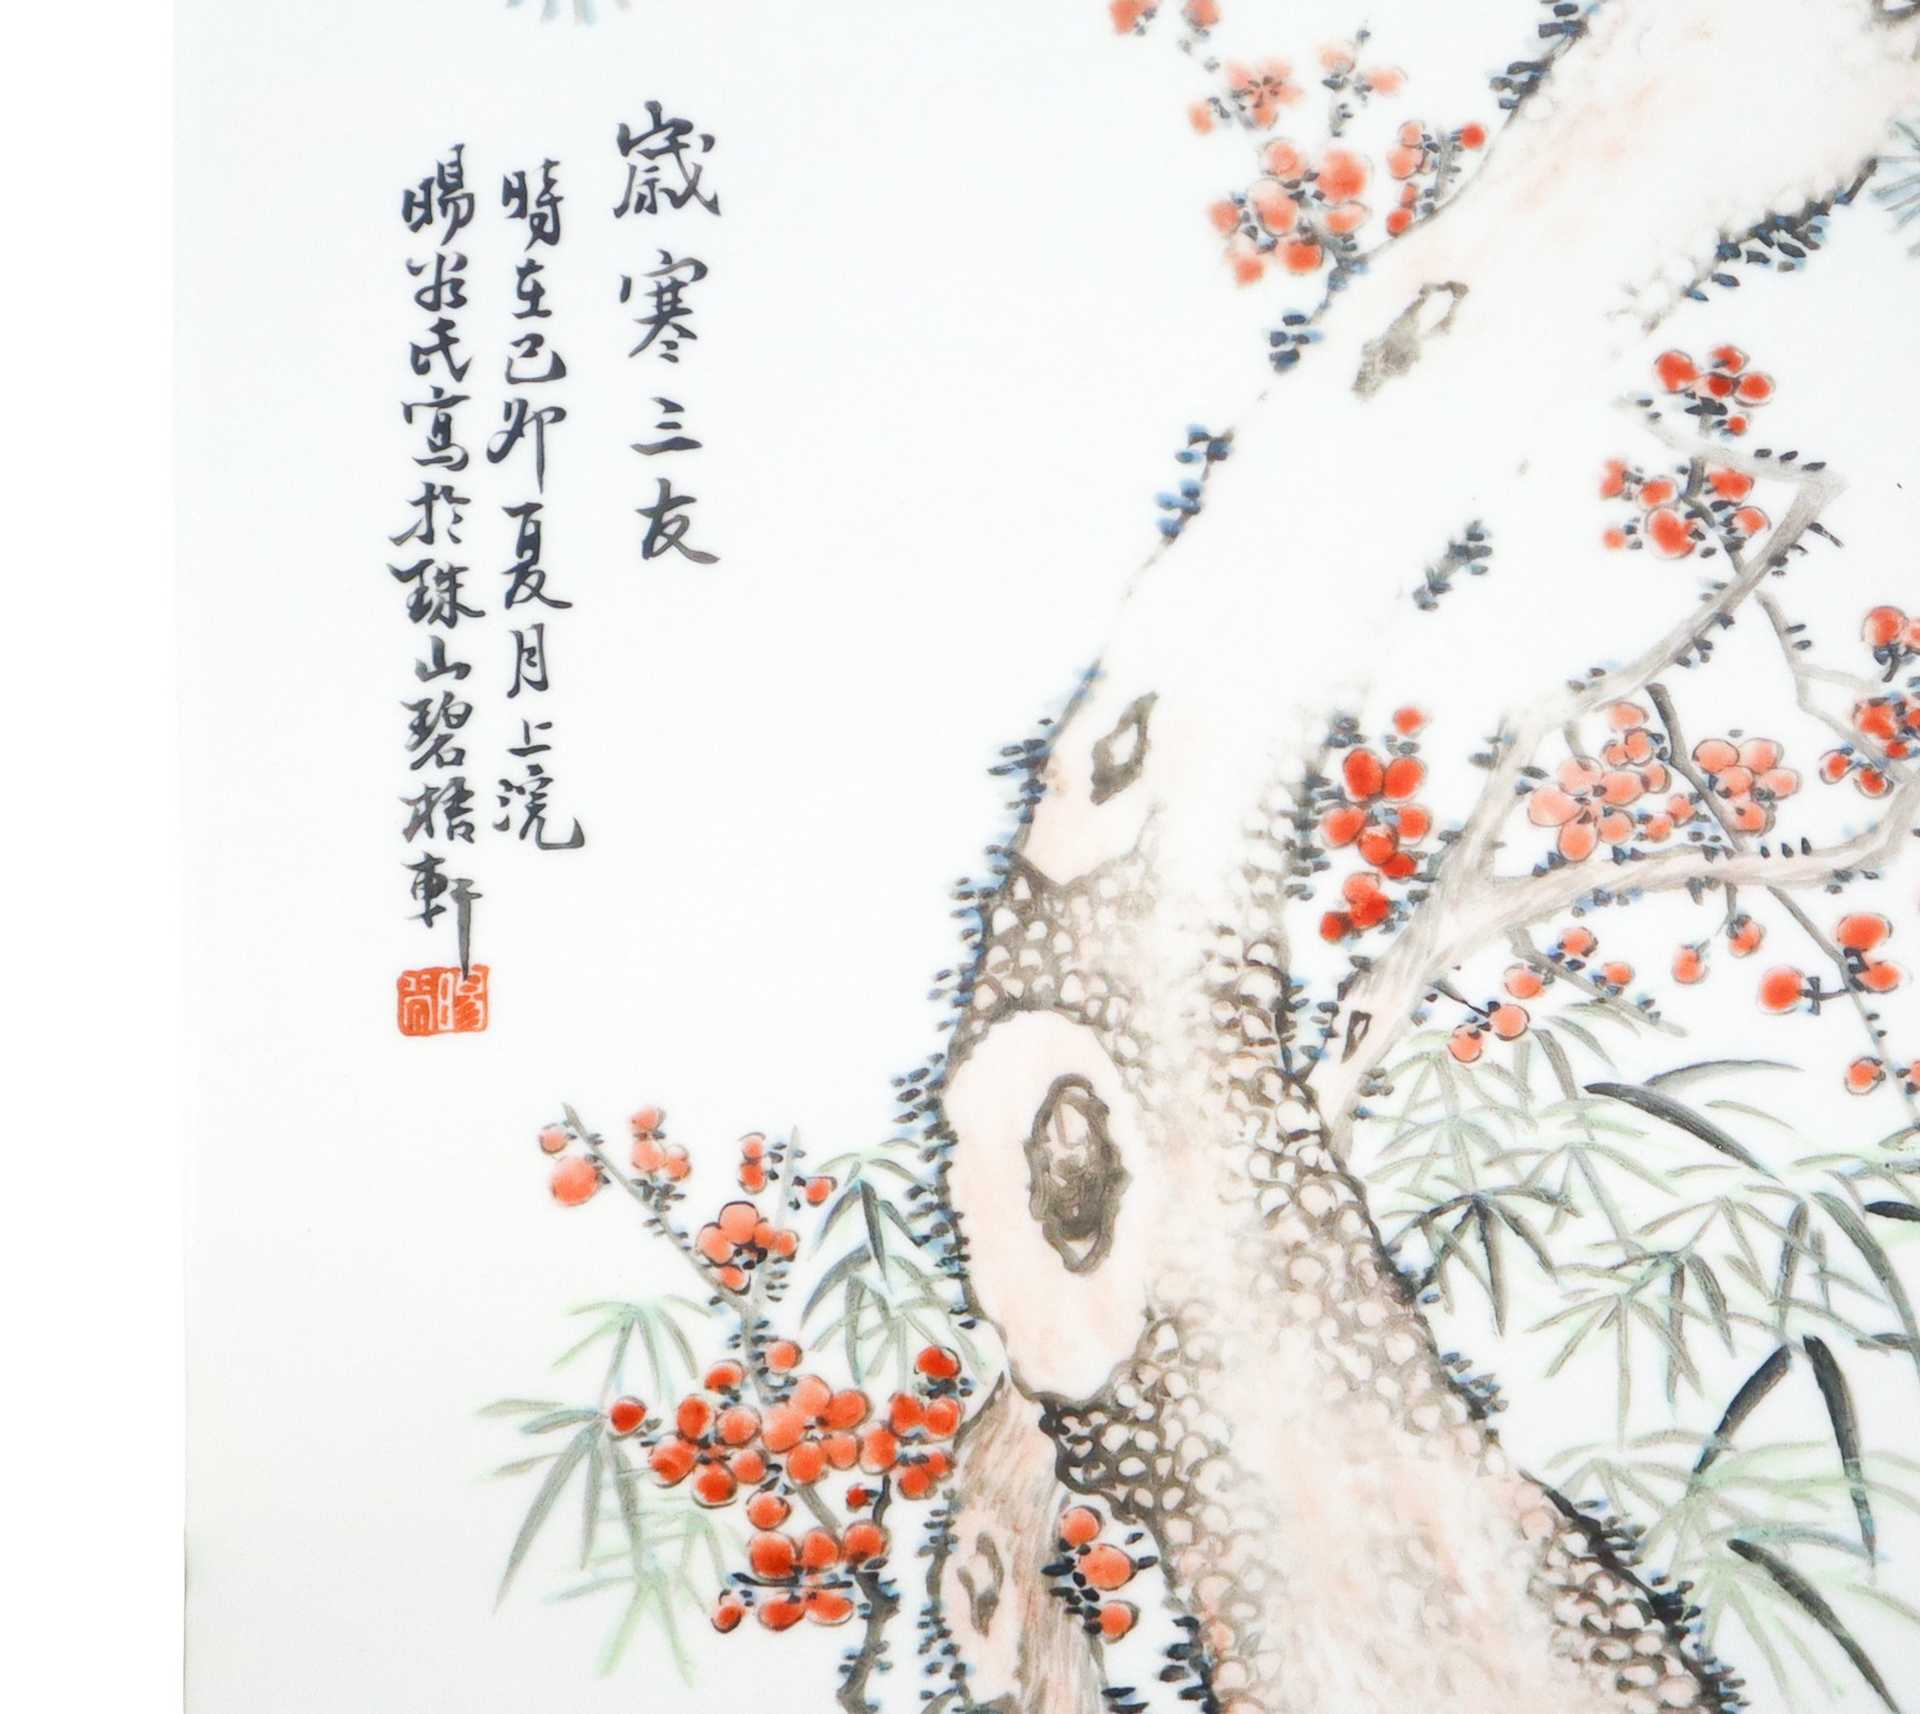 歲寒三友
時在己卯夏月上浣
暘谷氏寫於珠山碧梧軒
暘谷